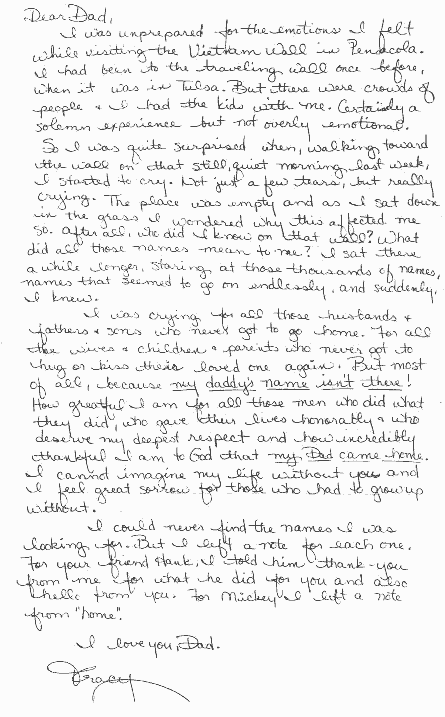 Dear Dad,
I was unprepared for the emotions I felt
while visiting the Vietnam Wall in Pensacola.
I had been to the traveling wall once before,
when it was in Tulsa. But there were crowds of
people & I had the kids with me. Certainly a
solemn experience but not overly emotional.
So I was quite surprised when, walking toward
the wall on that still, quiet morning last week,
I started to cry. Not just a few tears, but really
crying. The place was empty and as I sat down
in the grass I wondered why this affected me
so. After all, who did I know on that wall? What
did all those names mean to me? I sat there
a while longer, staring at those thousands of names,
names that seemed to go on endlessly, and suddenly,
I knew.
I was crying for all those husbands &
fathers & sons who never got to go home. For all
the wives & children & parents who never got to
hug or kiss their loved one again. But most
of all, because my daddy's name isn't there!
How grateful I am for all those men who did what
they did, who gave their lives honorably & who
deserve my deepest respect and how incredibly
thankful I am to God that my Dad came home.
I cannot imagine my life without you and
I feel great sorrow for those who had to grow up
without.
I could never find the names I was
looking for. But I left a note for each one.
For your friend Hank, I told him thank-you
from me for what he did for you and also
hello from you. For Mickey I left a note
from "home".
I love you, Dad.
Tracey